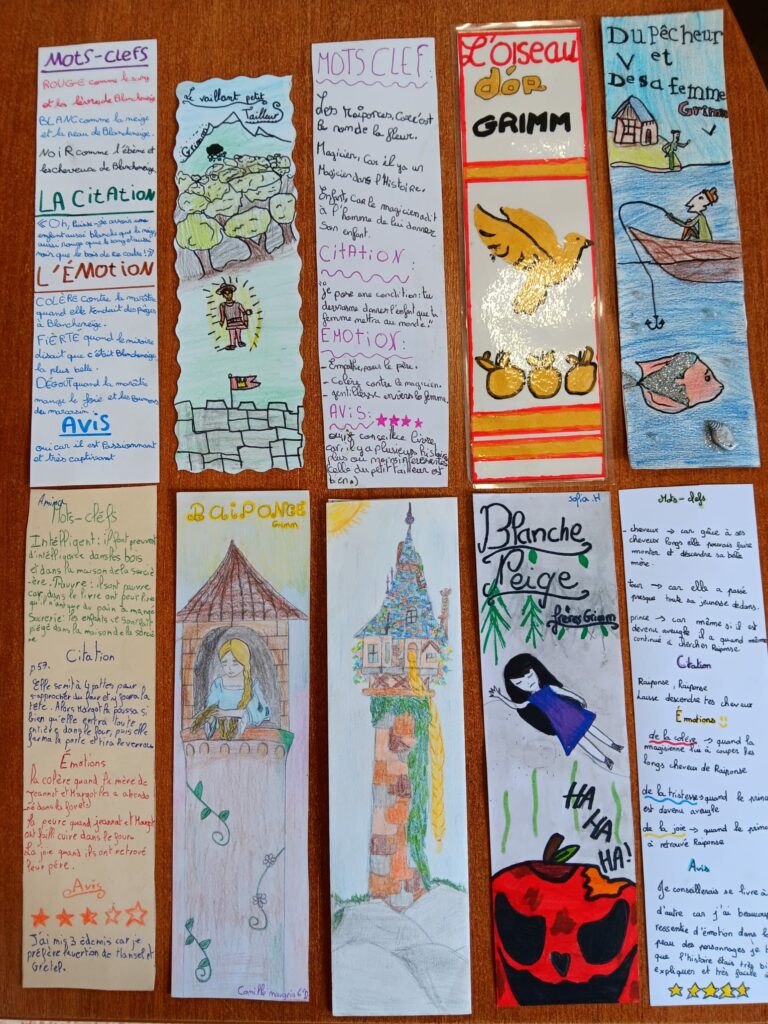 Mots-clefs
ROUGE comme le sang
et les lèvres de Blancheneige
BLANC comme la neige
et la peau de Blancheneige.
NOIR comme l'ébène et
les cheveux de Blancheneige.
LA CitAtion
"Oh, puisse-je avoir une
enfant aussi blanche que la neige
aussi rouge que le sang et aussi
noir que le bois de ce cadre!"
L'ÉMotion
COLÈRE contre la marâtre
quand elle tendait des pièges
à Blancheneige.
FIÈRTE quand le miroire
disait que c'était Blancheneige
la plus belle.
DÉGOUT quand la marâtre
mange le foie et les poumons
de marcassin
AVis
oui car il est Passionnant
et très captivant
Le vaillant petit
TailleurS
Grimm
MOTS CLEF
Les Raiponces, Car c'est
le nom de la fleur.
Magicien, Car il ya un
Magicien dans l'Histoire.
Enfant, car le magicien a dit
à l'homme de lui donner
son enfant.
CitAtion:
"je pose une condition: tu
devras me donner l'enfant que ta
femme mettra au monde."
EMOTION:
- Empathie, pour le père.
- Colère contre le magicien.
- gentillesse envers la femme.
AVis:
oui je conseille ce livre
car il y a plusieurs histoires
plus ou moins intéressantes
celle du petit tailleur est
bien
L'OISEAU
d'OR
GRIMM
Du Pêcheur
et
De sa femme
Grimm
Amina
Mots-clefs
Intelligent: il font preuvent
d'intelligence dans les bois
et dans la maison de la sorci
-ère. Pauvre: il sont pauvre
car dans le livre ont peut lire
qu'il n'ont que du pain a mangé
Sucrerie: les enfants ce sont fait
piégé dans la maison de la sorci
ère
Citation
p57.
Elle se mit à 4 pattes pour
s'approcher du four et y fourra la
tête. Alors Margot la poussa si
bien qu'elle entra toute
entière dans le four, puis elle
ferma la porte et tira le verrou
Emotions
la colère quand la mère de
Jeannot et Margot les a abando
-né dans la forets
la peure quand jeannot et Margot
ont failli cuire dans le four.
La joie quand ils ont retrouvé
leur père.
Avis
J'ai mis 3 é demis car je
préfère la vertion de Hansel et
Gretel.
RAiPONCE
Grimm
Camille maugris 6°D
sofia.H
Blanche
Neige
frères Grimm
HA
HA
HA!
Mots-clefs
- cheveux → car grâce à ses
cheveux longs elle pouvais faire
monter et descendre sa belle
mère.
tour → car elle a passé
presque toute sa jeunesse dedans.
prince → car même si il est
devenu aveugle il a quand même
continué a cherches Raiponse.
Citation
Raiponse, Raiponse
Laisse descendre tes cheveux
Émotions
de la colère → quand la
magisienne lui a coupés les
longs cheveux de Raiponse
de la tristesse → quand le princ
est devenu aveugle
de la joie → quand le princ
à retrouvé Raiponse
Avis
Je conseillerais se livre à
d'autre car j'ai beaucou
ressentie d'émotion dans la
peau des personnages je t
que l'histoire étais très bi
expliquer et très facile à